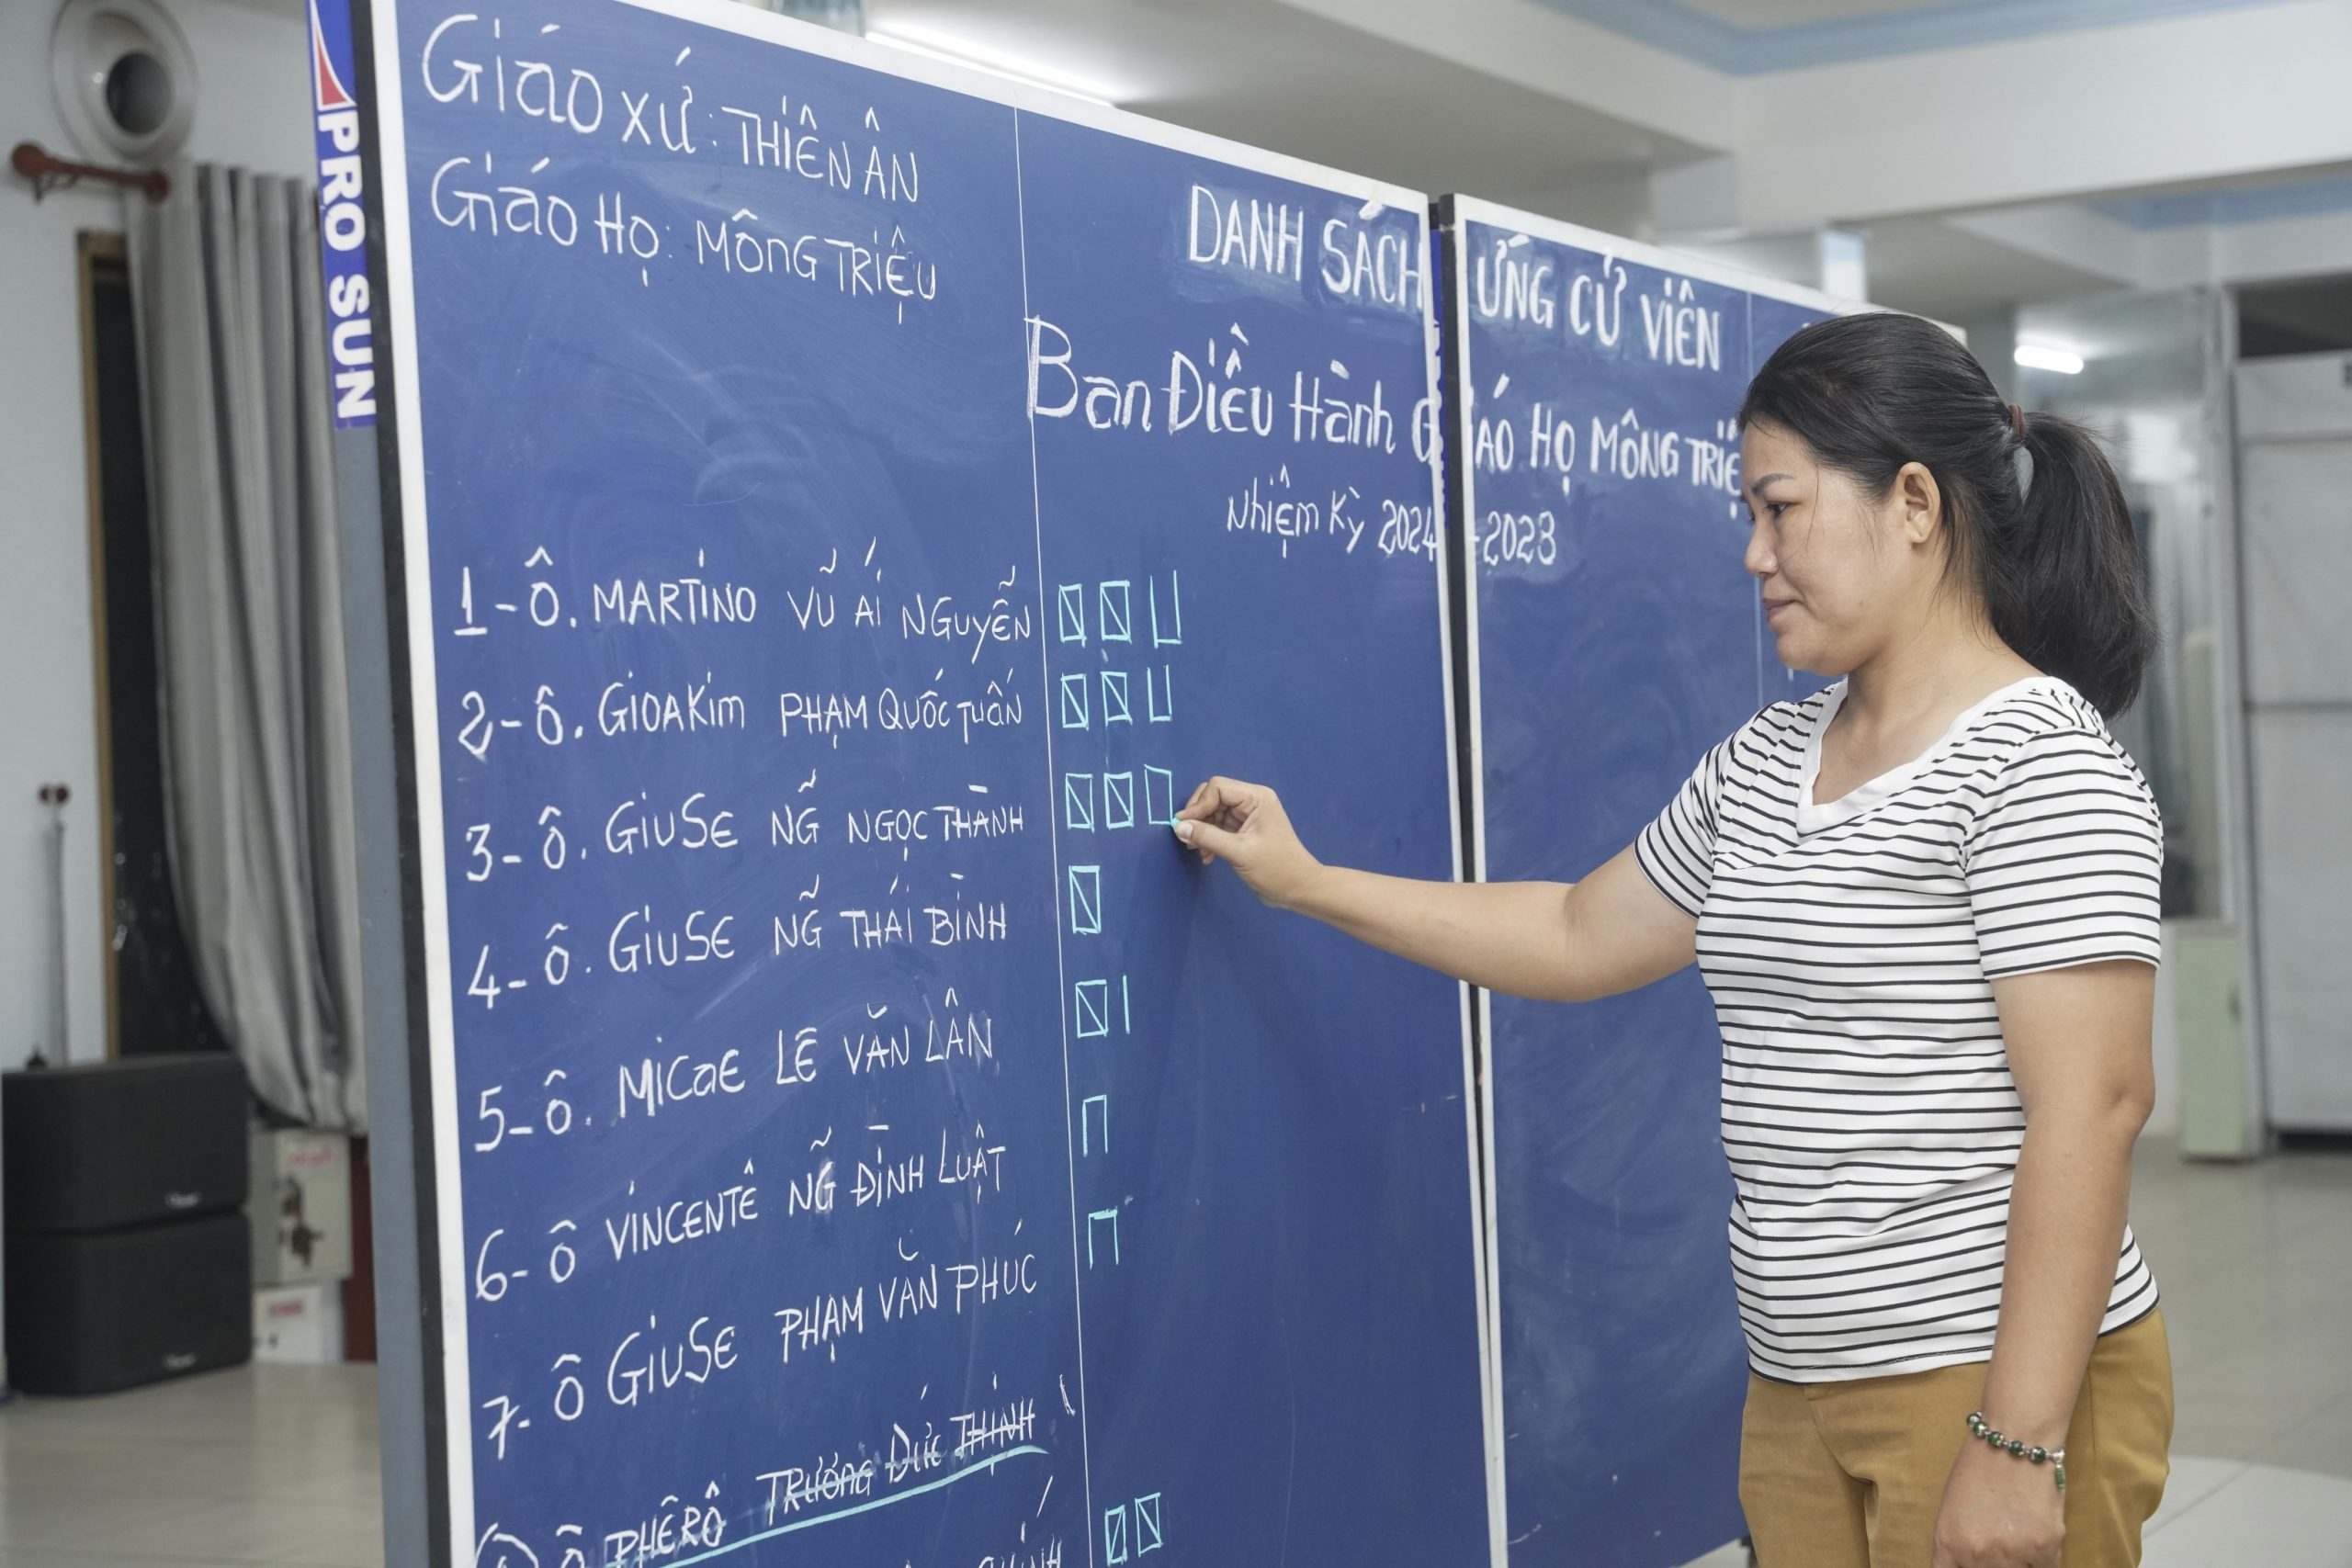 PRO SUN
Giáo xứ: THIÊN ÂN
Giáo Họ: MÔNG TRIỆU
DANH SÁCH ỨNG CỬ VIÊN
Ban Điều Hành GIÁO HỌ MÔNG TRIỆ
Nhiệm Kỳ 2024-2028
1-Ô. MARTINO VŨ ÁI NGUYỄN
2-Ô. GIOAKIM PHẠM QUỐC TUẤN
3-Ô. GIUSE NG̃ NGỌC THÀNH
4-Ô. GIUSE NG̃ THÁI BÌNH
5-Ô. MICAE LÊ VĂN LÂN
6-Ô VINCENTÊ NG̃ ĐÌNH LUẬT
7-Ô GIUSE PHẠM VĂN PHÚC
Ô PHÊRÔ TRƯƠNG ĐỨC THỊNH